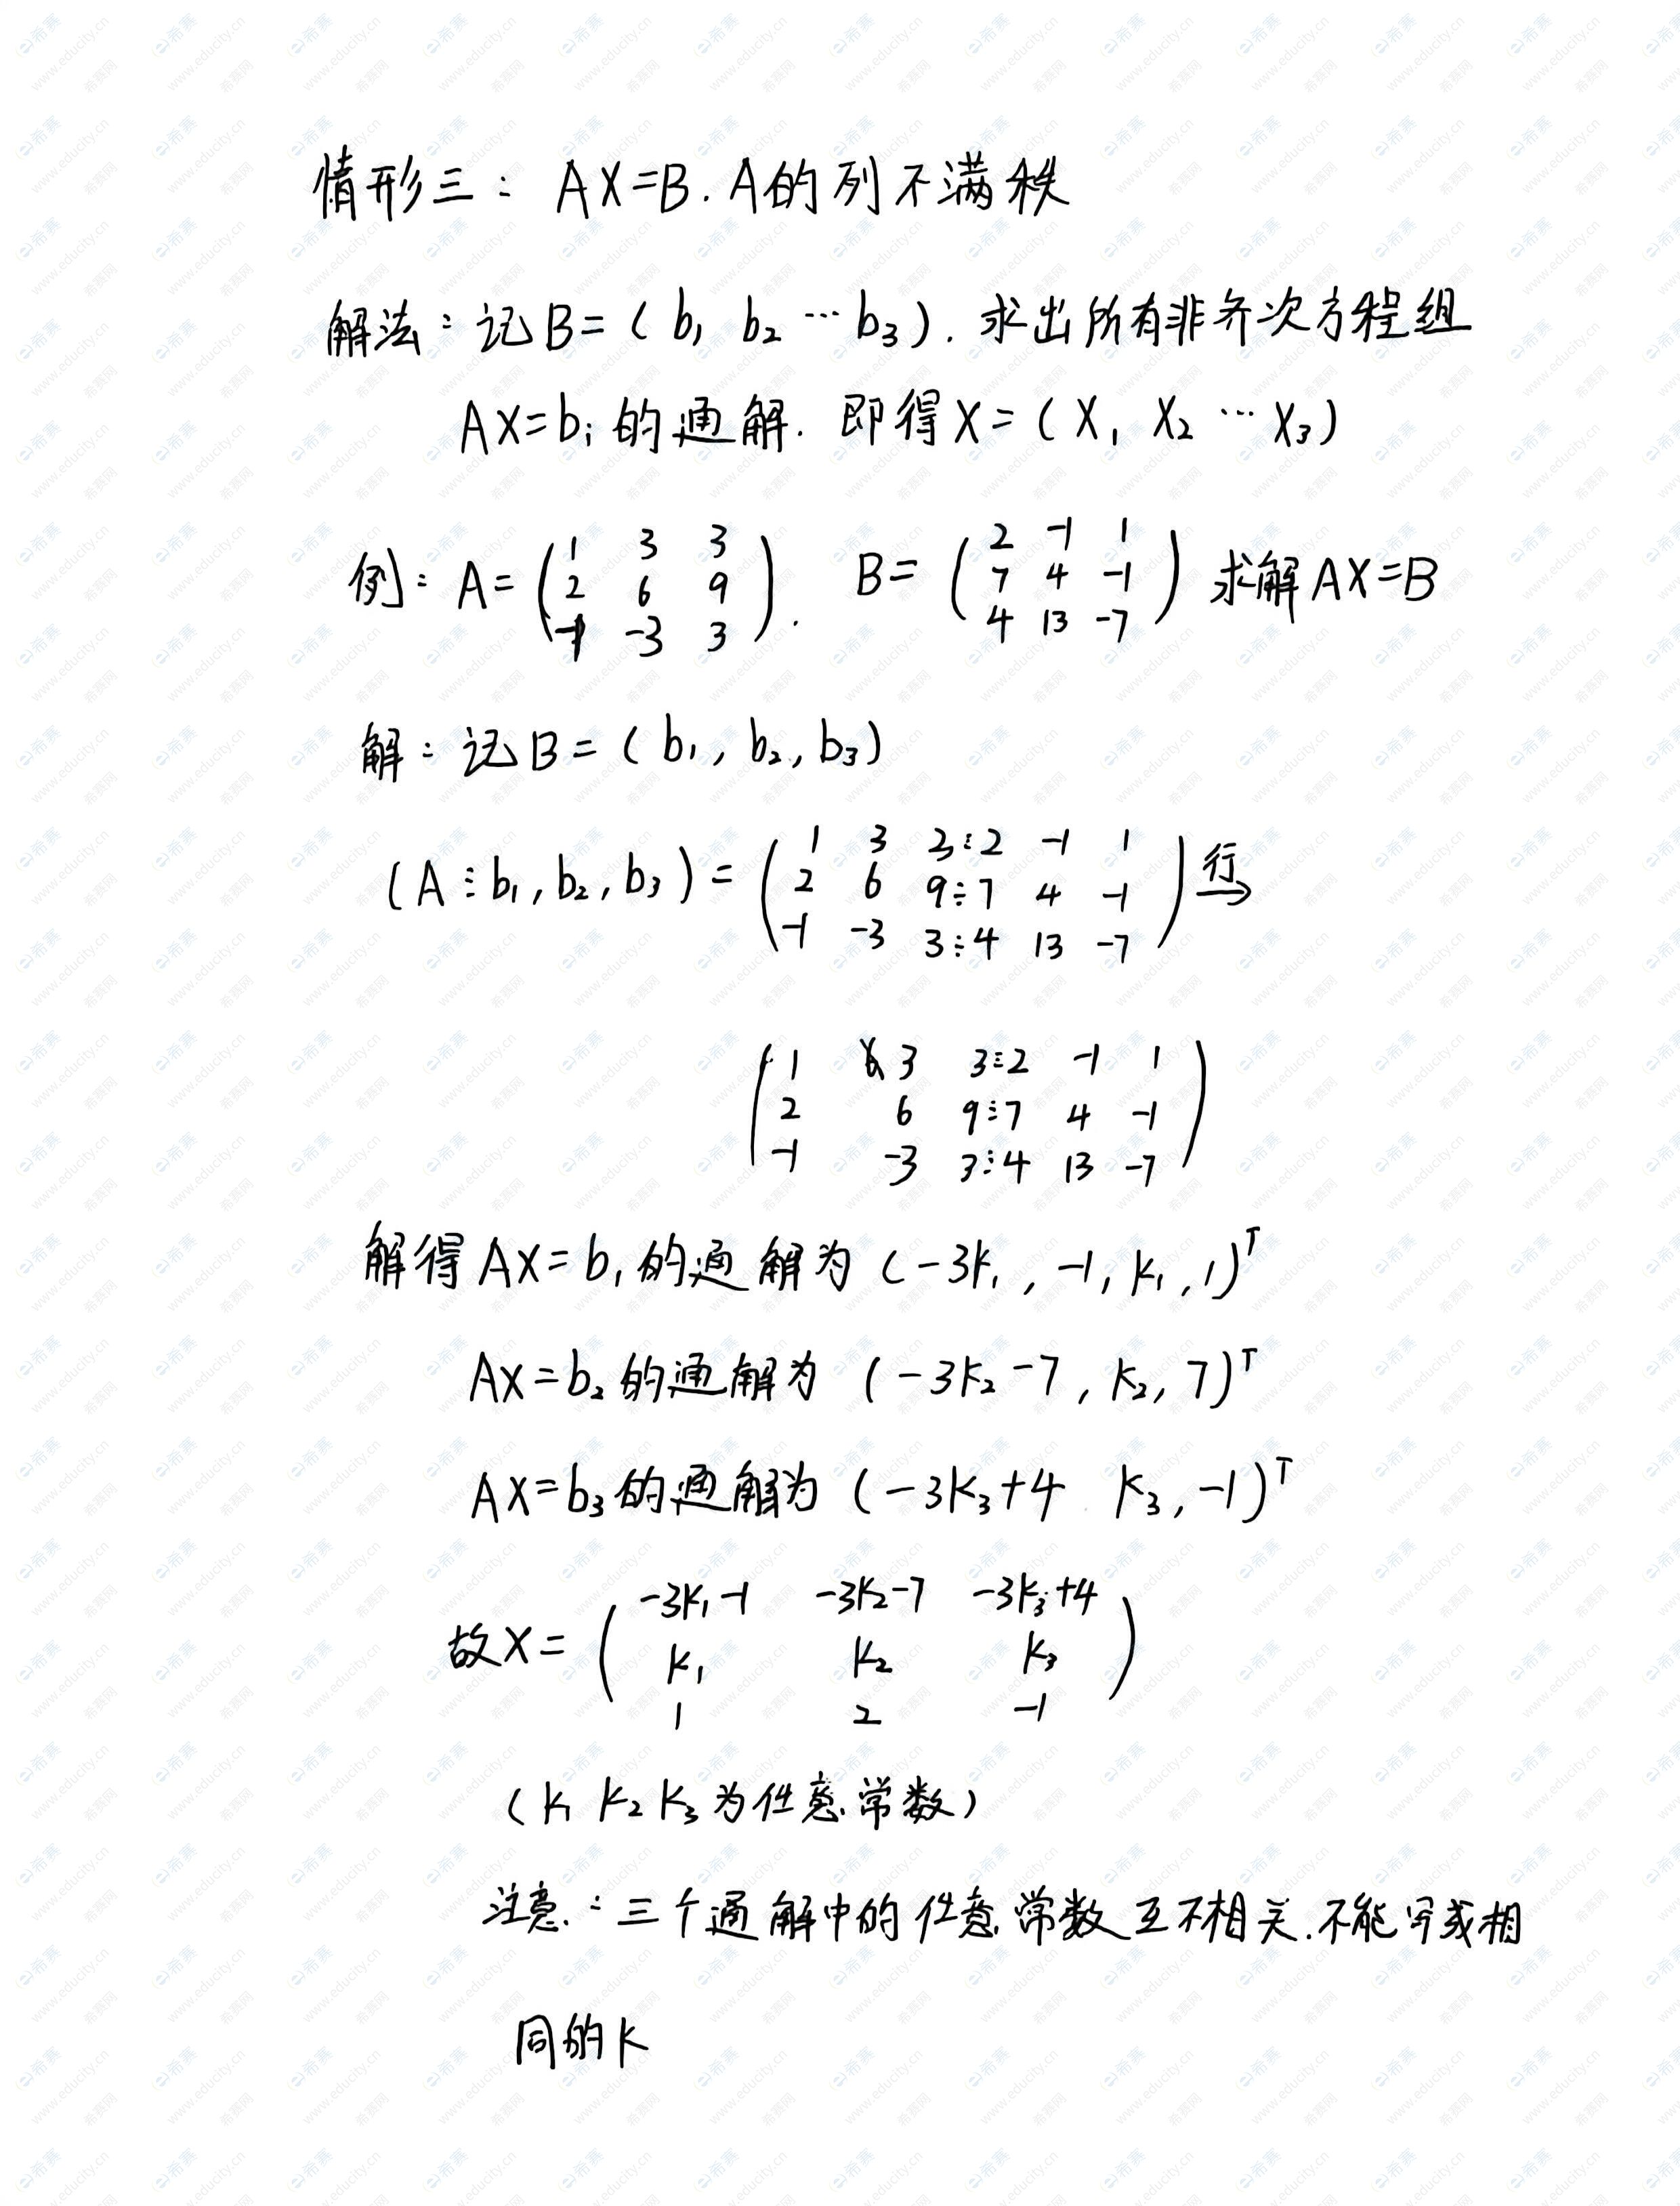 情形三：AX=B. A的列不满秩
解法：记B=( b₁ b₂ … b₃). 求出所有非齐次方程组
AX=bᵢ的通解. 即得X=( X₁ X₂ … X₃)
例：A=(1 3 3; 2 6 9; -1 -3 3). B=(2 -1 1; 7 4 -1; 4 13 -7) 求解AX=B
解：记B=( b₁, b₂, b₃)
(A⋮b₁, b₂, b₃)=(1 3 3⋮2 -1 1; 2 6 9⋮7 4 -1; -1 -3 3⋮4 13 -7) 行→
(1 3 3⋮2 -1 1; 2 6 9⋮7 4 -1; -1 -3 3⋮4 13 -7)
解得AX=b₁的通解为(-3k₁, -1, k₁, 1)ᵀ
AX=b₂的通解为(-3k₂-7, k₂, 7)ᵀ
AX=b₃的通解为(-3k₃+4 k₃, -1)ᵀ
故X=(-3k₁-1 -3k₂-7 -3k₃+4; k₁ k₂ k₃; 1 2 -1)
(k₁ k₂ k₃为任意常数)
注意：三个通解中的任意常数互不相关.不能写成相
同的k
希赛
www.educity.cn
希赛网